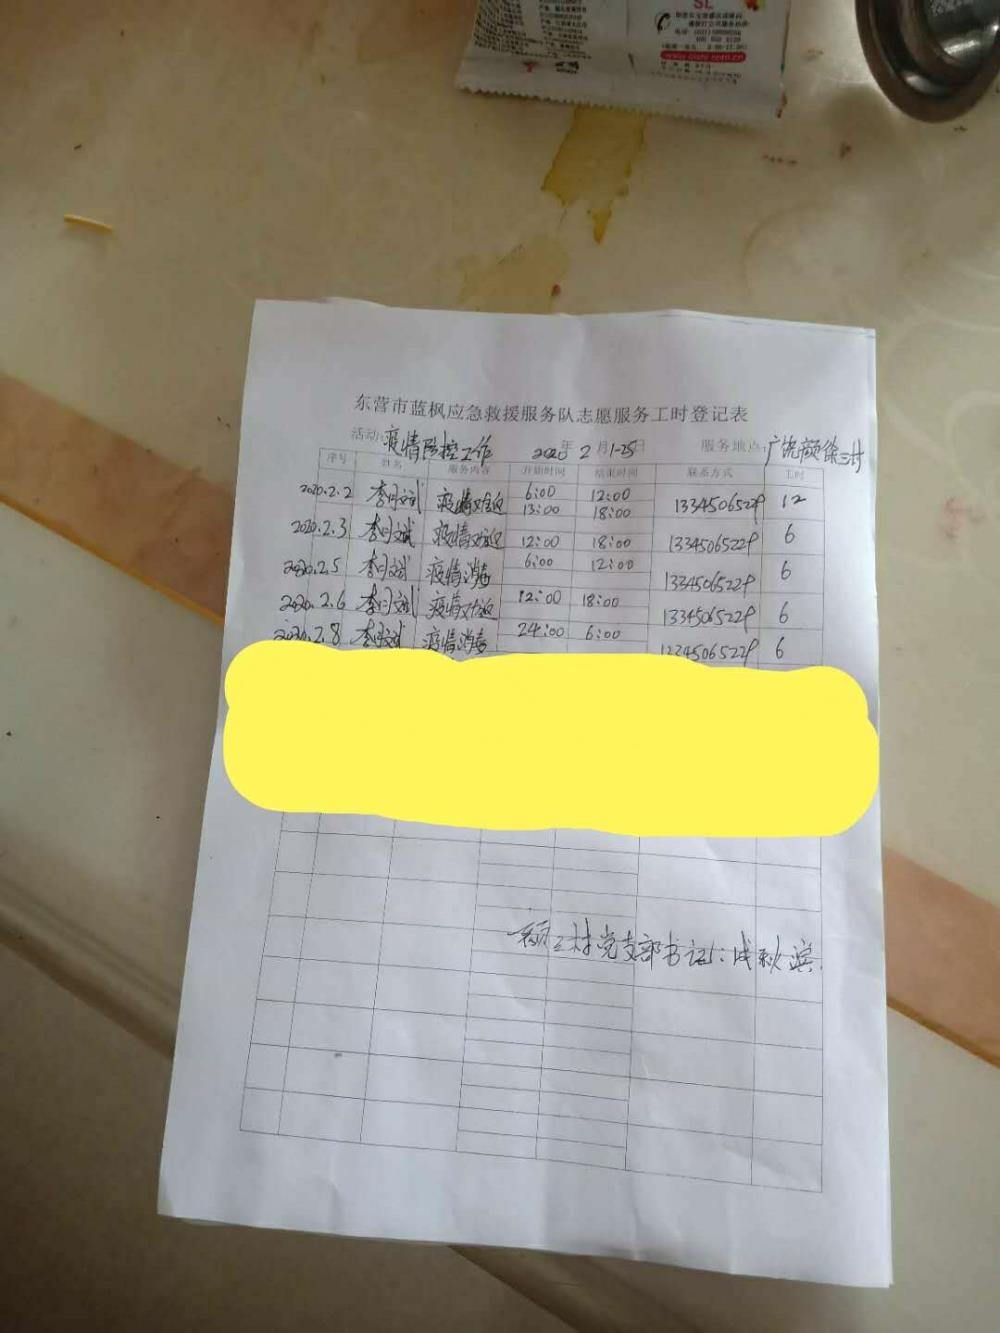 SL
www.cishi.com.cn
东营市蓝枫应急救援服务队志愿服务工时登记表
活动:疫情防控工作 2020年2月1-25日 服务地点:广饶颜徐三村
序号 姓名 服务内容 开始时间 结束时间 联系方式 工时
2020.2.2 李月斌 疫情 6:00 12:00 13345065229 12
13:00 18:00
2020.2.3 李月斌 疫情 12:00 18:00 13345065229 6
2020.2.5 李月斌 疫情消毒 6:00 12:00 13345065229 6
2020.2.6 李月斌 疫情 12:00 18:00 13345065229 6
2020.2.8 李月斌 疫情消毒 24:00 6:00 13345065229 6
村党支部书记:成秋滨